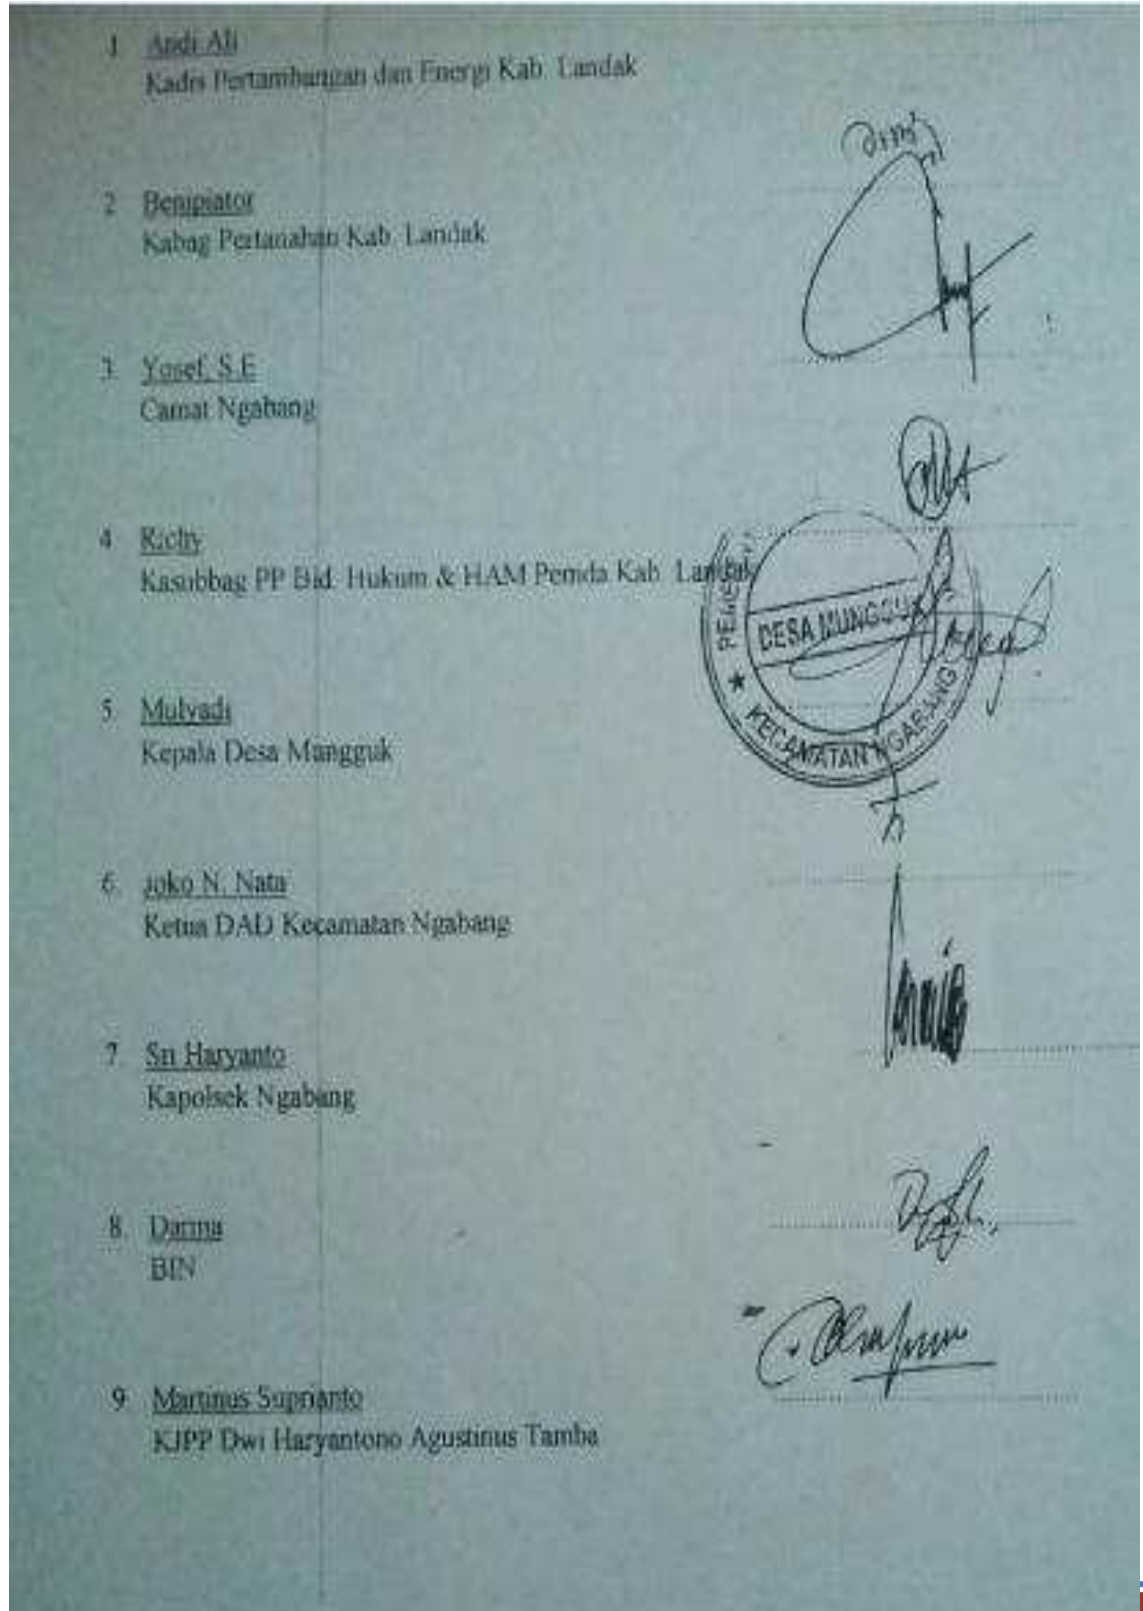 1 Andi Ali
Kadis Pertambangan dan Energi Kab. Landak
2 Benipiator
Kabag Pertanahan Kab. Landak
3. Yosef, S.E
Camat Ngabang
4 Richy
Kasubbag PP Bid. Hukum & HAM Pemda Kab. Landak
DESA MUNGGUK
★ KECAMATAN NGABANG
5. Mulyadi
Kepala Desa Mangguk
6. Joko N. Nata
Ketua DAD Kecamatan Ngabang
7. Sri Haryanto
Kapolsek Ngabang
8. Darma
BIN
9 Martinus Suprianto
KJPP Dwi Haryantono Agustinus Tamba